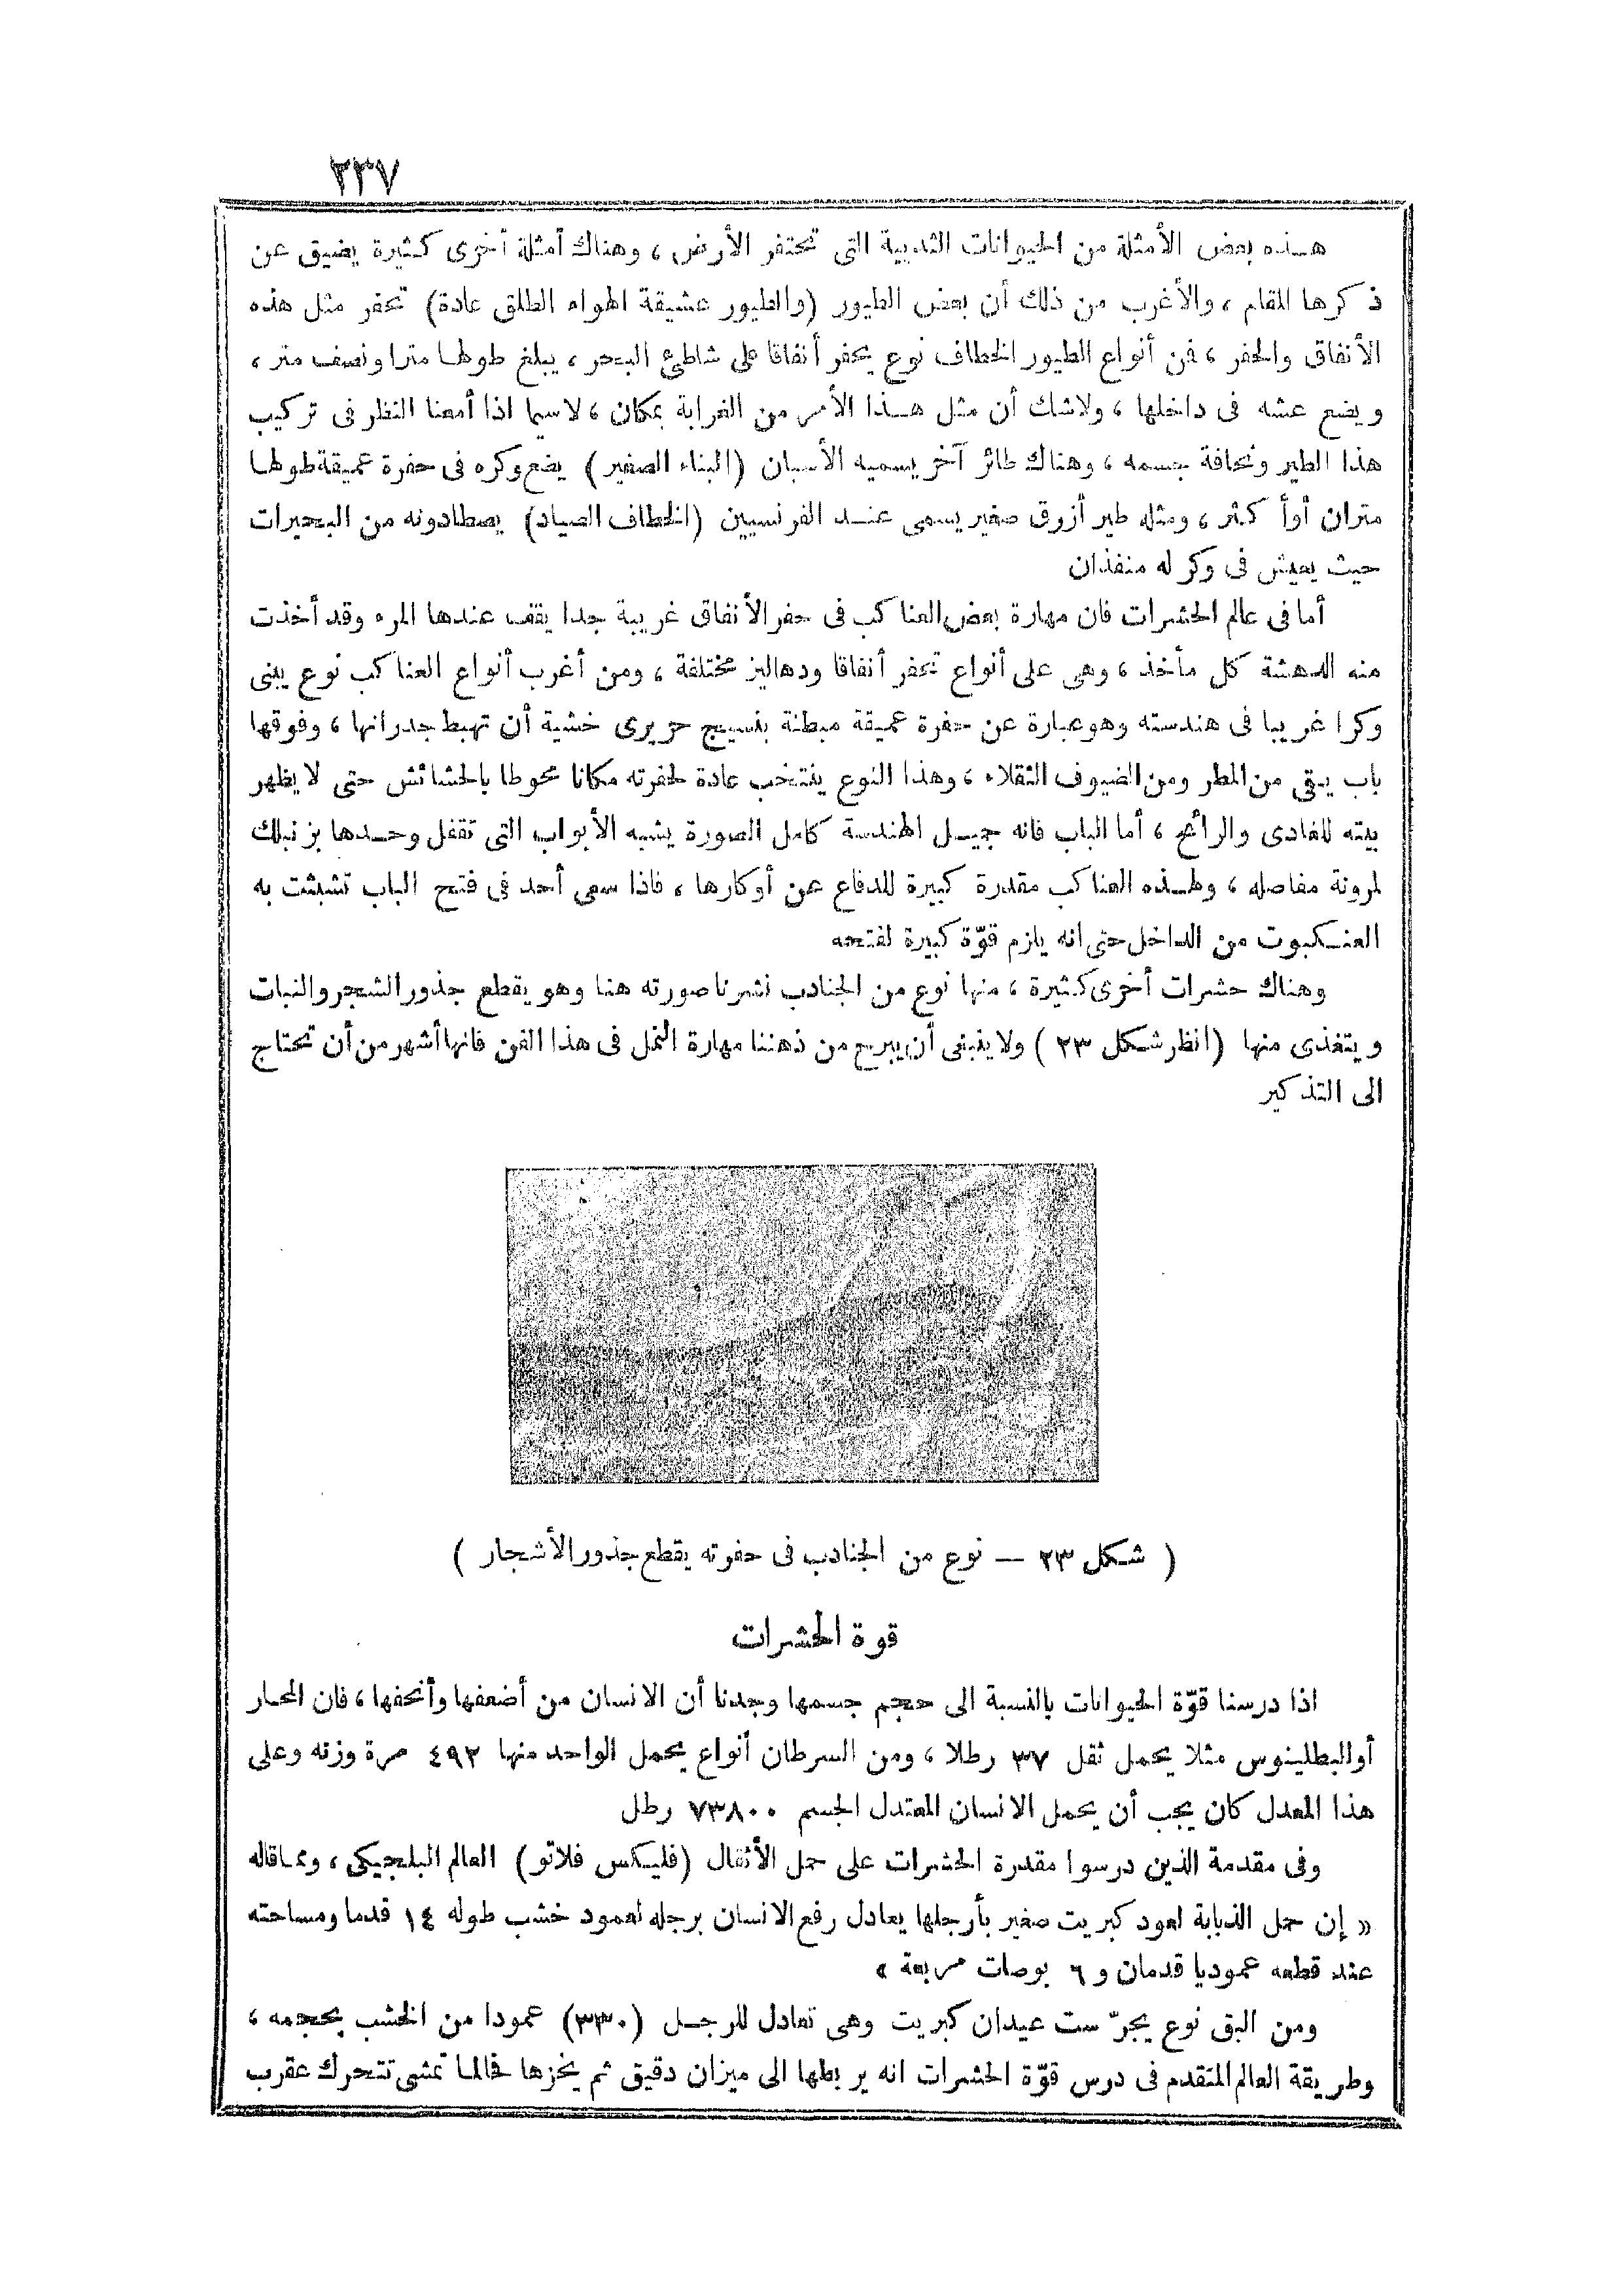 ٢٣٧
هذه بعض الأمثلة من الحيوانات الثديية التى تحتفر الأرض ، وهناك أمثلة أخرى كثيرة يضيق عن
ذكرها المقام ، والأغرب من ذلك أن بعض الطيور (والطيور عشيقة الهواء الطلق عادة) تحفر مثل هذه
الأنفاق والحفر ، فمن أنواع الطيور الخطاف نوع يحفر أنفاقا على شاطئ البحر ، يبلغ طولها مترا ونصف متر ،
ويضع عشه فى داخلها ، ولاشك أن مثل هذا الأمر من الغرابة بمكان ، لاسيما اذا أمعنا النظر فى تركيب
هذا الطير ونحافة جسمه ، وهناك طائر آخر يسميه الأسبان (البناء الصغير) يضع وكره فى حفرة عميقة طولها
متران أوأكثر ، ومثله طير أزرق صغير يسمى عند الفرنسيين (الخطاف الصياد) يصطادونه من البحيرات
حيث يعيش فى وكر له منفذان
أما فى عالم الحشرات فان مهارة بعض العناكب فى حفر الأنفاق غريبة جدا يقف عندها المرء وقد أخذت
منه الدهشة كل مأخذ ، وهى على أنواع تحفر أنفاقا ودهاليز مختلفة ، ومن أغرب أنواع العناكب نوع يبنى
وكرا غريبا فى هندسته وهو عبارة عن حفرة عميقة مبطنة بنسيج حريرى خشية أن تهبط جدرانها ، وفوقها
باب يقى من المطر ومن الضيوف الثقلاء ، وهذا النوع ينتخب عادة لحفرته مكانا محوطا بالحشائش حتى لا يظهر
بيته للغادى والرائح ، أما الباب فانه جميل الهندسة كامل الصورة يشبه الأبواب التى تقفل وحدها بزنبلك
لمرونة مفاصله ، ولهذه العناكب مقدرة كبيرة للدفاع عن أوكارها ، فاذا سعى أحد فى فتح الباب تشبثت به
العنكبوت من الداخل حتى انه يلزم قوّة كبيرة لفتحه
وهناك حشرات أخرى كثيرة ، منها نوع من الجنادب نشرنا صورته هنا وهو يقطع جذور الشجر والنبات
ويتغذى منها (انظر شكل ٢٣) ولا ينبغى أن يبرح من ذهننا مهارة النمل فى هذا الفن فانها أشهر من أن تحتاج
الى التذكير
( شكل ٢٣ — نوع من الجنادب فى حفرته يقطع جذور الأشجار )
قوة الحشرات
اذا درسنا قوّة الحيوانات بالنسبة الى حجم جسمها وجدنا أن الانسان من أضعفها وأنحفها ، فان المحار
أوالبطلينوس مثلا يحمل ثقل ٣٧ رطلا ، ومن السرطان أنواع يحمل الواحد منها ٤٩٢ مرة وزنه وعلى
هذا المعدل كان يجب أن يحمل الانسان المعتدل الجسم ٧٣٨٠٠ رطل
وفى مقدمة الذين درسوا مقدرة الحشرات على حمل الأثقال (فليكس فلاتو) العالم البلجيكى ، ومماقاله
« إن حمل الذبابة لعود كبريت صغير بأرجلها يعادل رفع الانسان برجله لعمود خشب طوله ١٤ قدما ومساحته
عند قطعه عموديا قدمان و ٦ بوصات مربعة »
ومن البق نوع يجرّ ست عيدان كبريت وهى تعادل للرجل (٣٣٠) عمودا من الخشب بحجمه ،
وطريقة العالم المتقدم فى درس قوّة الحشرات انه يربطها الى ميزان دقيق ثم ينخزها فالما تمشى تتحرك عقرب